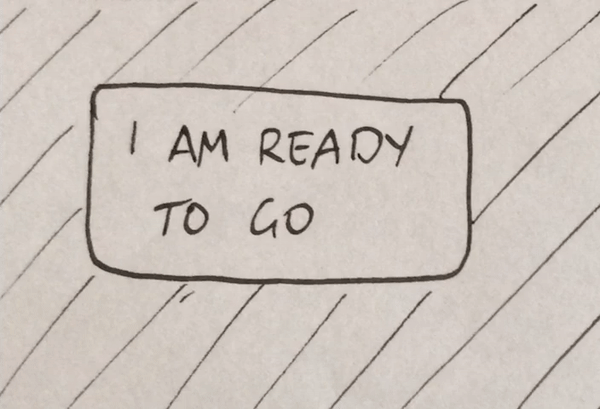 I AM READY
TO GO